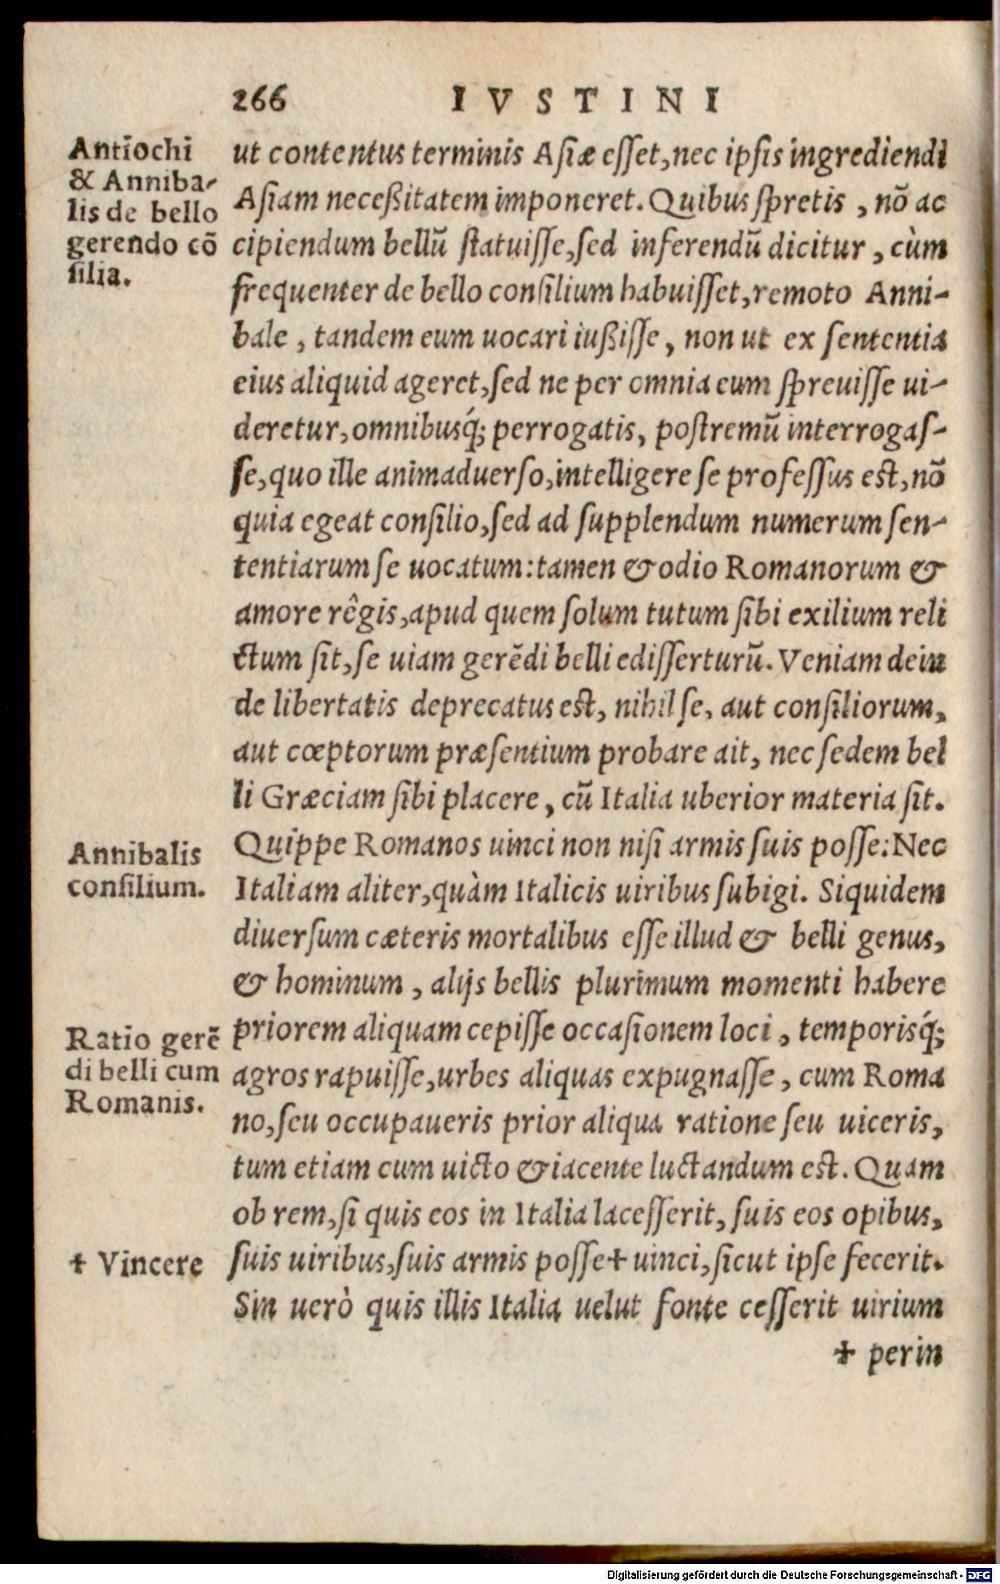 266 IVSTINI
Antiochi
& Anniba-
lis de bello
gerendo cō
silia.
ut contentus terminis Asiæ esset, nec ipsis ingrediendi
Asiam neceßitatem imponeret. Quibus spretis, nō ac
cipiendum bellū statuisse, sed inferendū dicitur, cùm
frequenter de bello consilium habuisset, remoto Anni-
bale, tandem eum uocari iußisse, non ut ex sententia
eius aliquid ageret, sed ne per omnia eum spreuisse ui-
deretur, omnibusq́; perrogatis, postremū interrogas-
se, quo ille animaduerso, intelligere se professus est, nō
quia egeat consilio, sed ad supplendum numerum sen-
tentiarum se uocatum: tamen & odio Romanorum &
amore rêgis, apud quem solum tutum sibi exilium reli
ctum sit, se uiam gerēdi belli edisserturū. Veniam dein
de libertatis deprecatus est, nihil se, aut consiliorum,
aut cœptorum præsentium probare ait, nec sedem bel
li Græciam sibi placere, cū Italia uberior materia sit.
Annibalis
consilium.
Quippe Romanos uinci non nisi armis suis posse: Nec
Italiam aliter, quàm Italicis uiribus subigi. Siquidem
diuersum cæteris mortalibus esse illud & belli genus,
& hominum, alijs bellis plurimum momenti habere
Ratio gerē
di belli cum
Romanis.
priorem aliquam cepisse occasionem loci, temporisq́;
agros rapuisse, urbes aliquas expugnasse, cum Roma
no, seu occupaueris prior aliqua ratione seu uiceris,
tum etiam cum uicto & iacente luctandum est. Quam
ob rem, si quis eos in Italia lacesserit, suis eos opibus,
† Vincere
suis uiribus, suis armis posse † uinci, sicut ipse fecerit.
Sin uerò quis illis Italia uelut fonte cesserit uirium
† perin
Digitalisierung gefördert durch die Deutsche Forschungsgemeinschaft - DFG